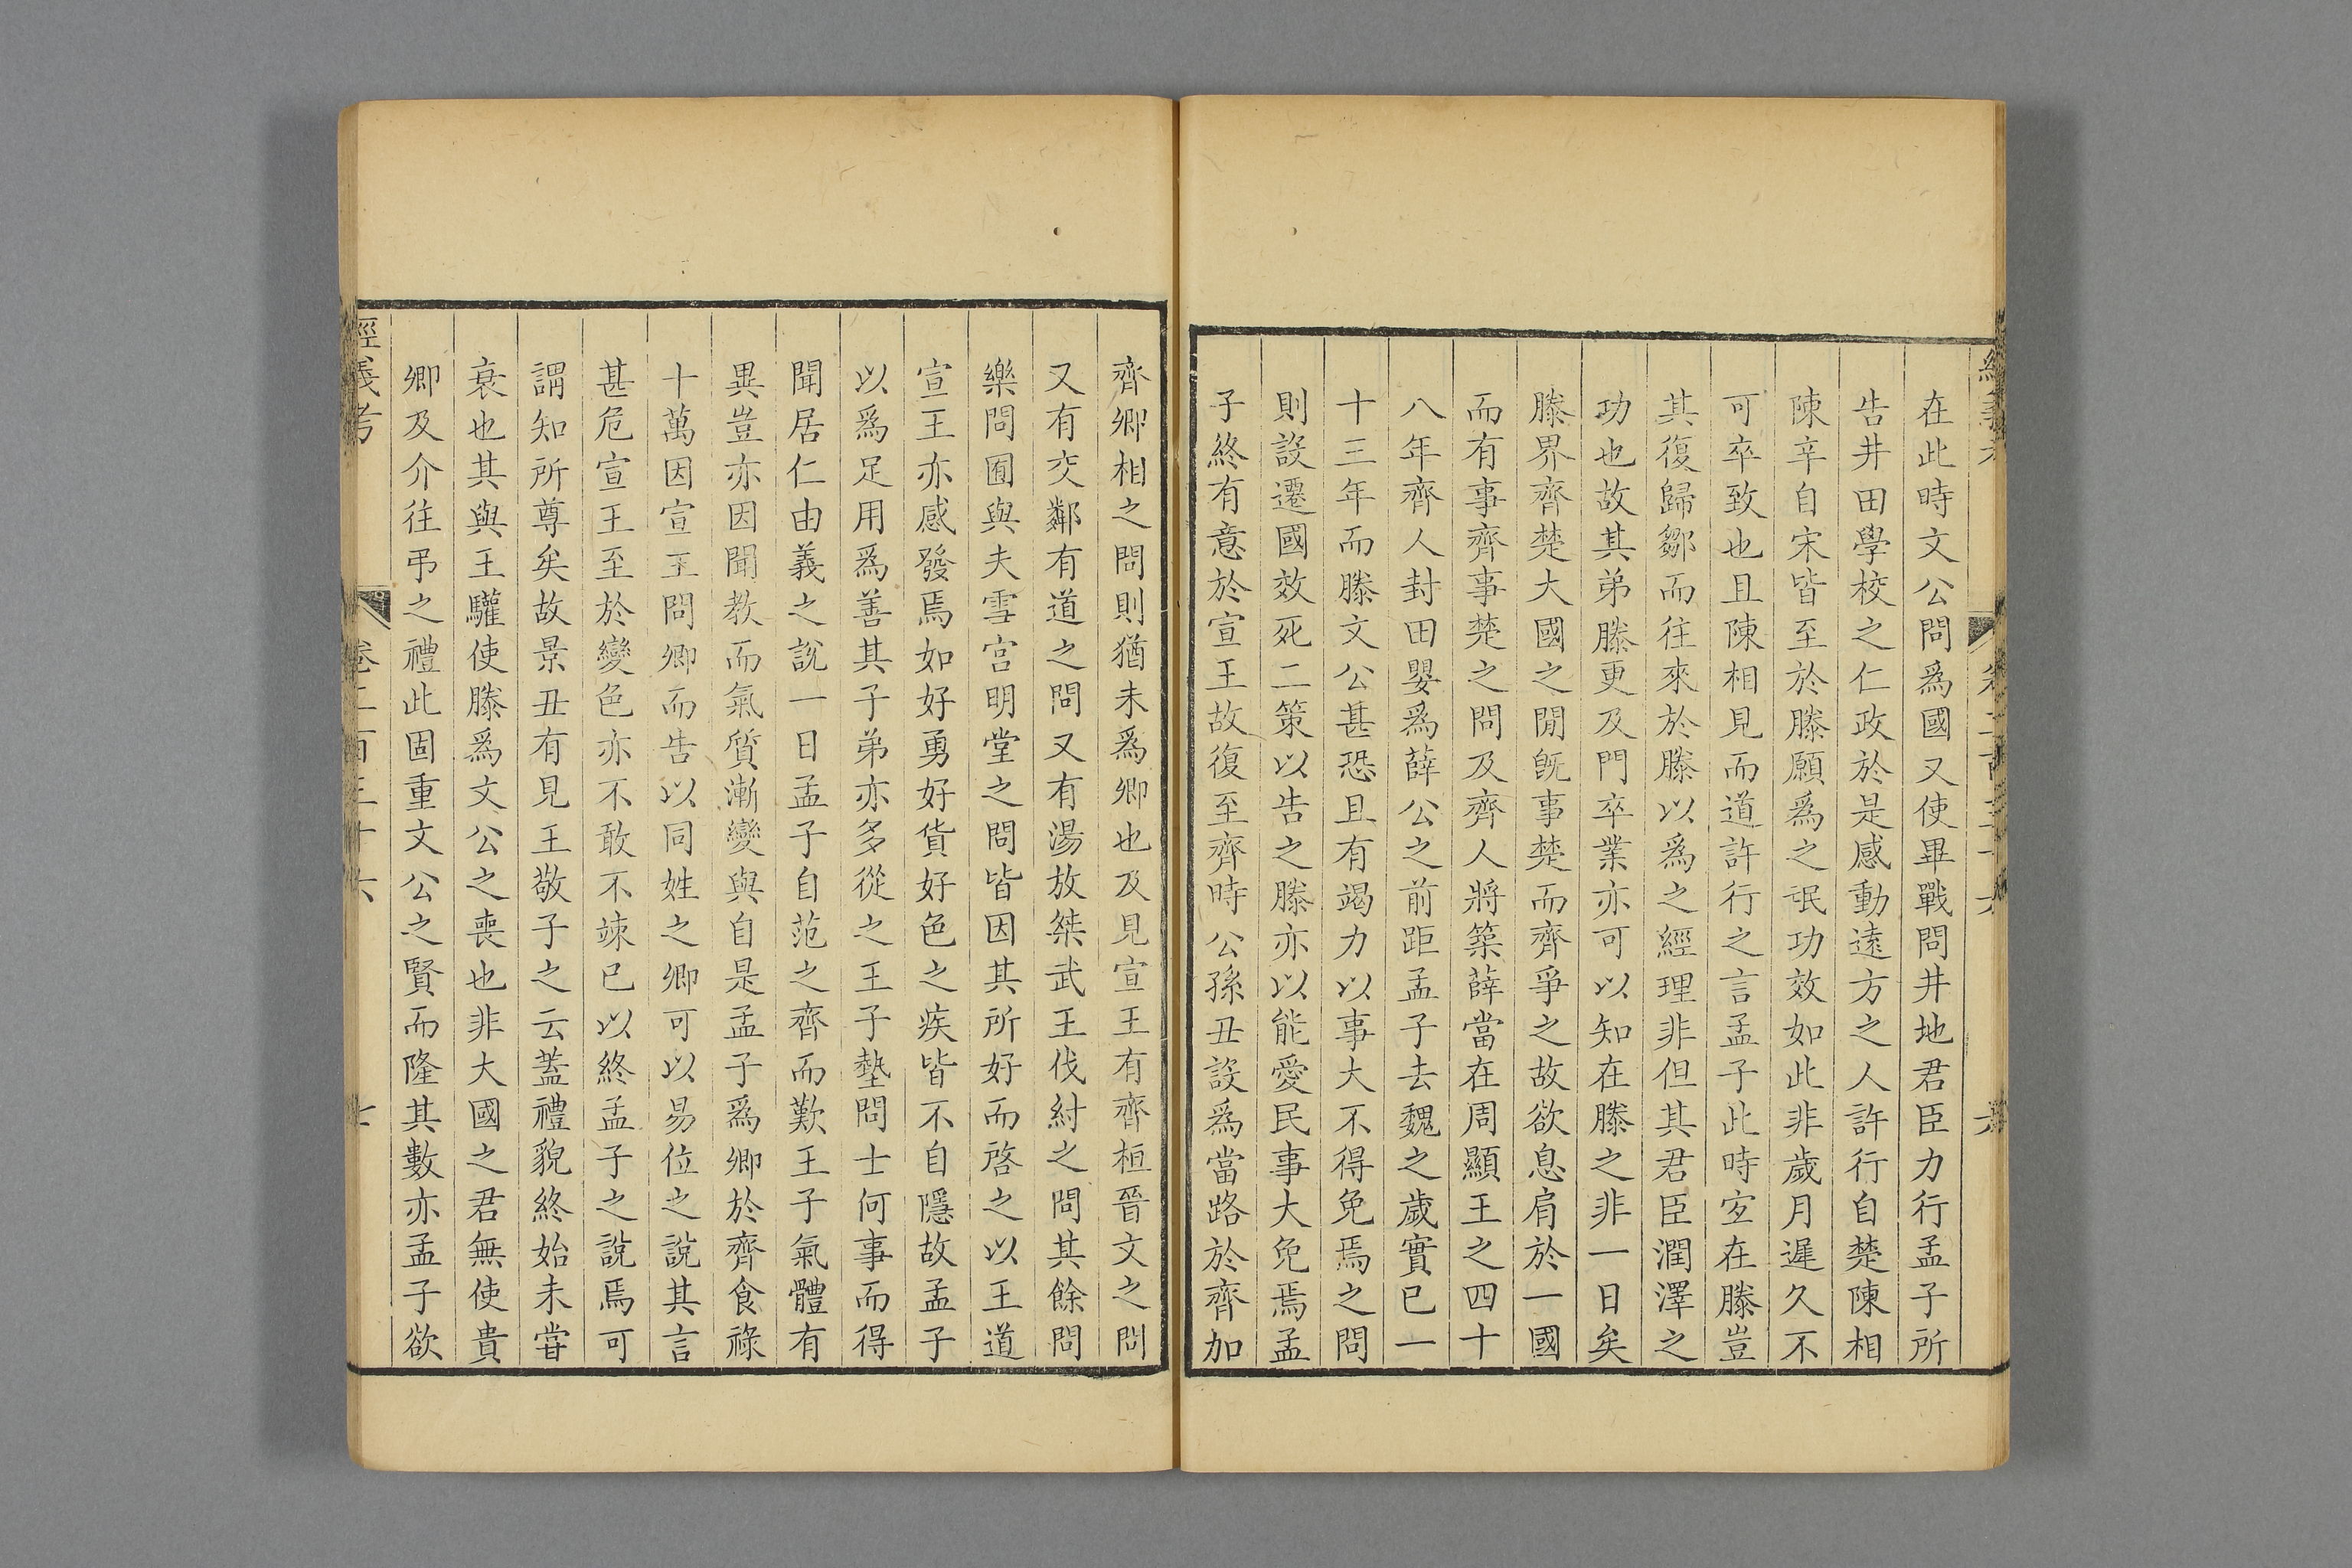 在此時文公問爲國又使畢戰問井地君臣力行孟子所
告井田學校之仁政於是感動遠方之人許行自楚陳相
陳辛自宋皆至於滕願爲之氓功效如此非歲月遲久不
可卒致也且陳相見而道許行之言孟子此時寔在滕豈
其復歸鄒而往來於滕以爲之經理非但其君臣潤澤之
功也故其弟滕更及門卒業亦可以知在滕之非一日矣
滕界齊楚大國之閒旣事楚而齊爭之故欲息肩於一國
而有事齊事楚之問及齊人將築薛當在周顯王之四十
八年齊人封田嬰爲薛公之前距孟子去魏之歲實已一
十三年而滕文公甚恐且有竭力以事大不得免焉之問
則設遷國效死二策以告之滕亦以能愛民事大免焉孟
子終有意於宣王故復至齊時公孫丑設爲當路於齊加
齊卿相之問則猶未爲卿也及見宣王有齊桓晉文之問
又有交鄰有道之問又有湯放桀武王伐紂之問其餘問
樂問囿與夫雪宮明堂之問皆因其所好而啓之以王道
宣王亦感發焉如好勇好貨好色之疾皆不自隱故孟子
以爲足用爲善其子弟亦多從之王子墊問士何事而得
聞居仁由義之說一日孟子自范之齊而歎王子氣體有
異豈亦因聞教而氣質漸變與自是孟子爲卿於齊食祿
十萬因宣王問卿而告以同姓之卿可以易位之說其言
甚危宣王至於變色亦不敢不竦已以終孟子之說焉可
謂知所尊矣故景丑有見王敬子之云蓋禮貌終始未嘗
衰也其與王驩使滕爲文公之喪也非大國之君無使貴
卿及介往弔之禮此固重文公之賢而隆其數亦孟子欲
經義考 卷二百三十六 七